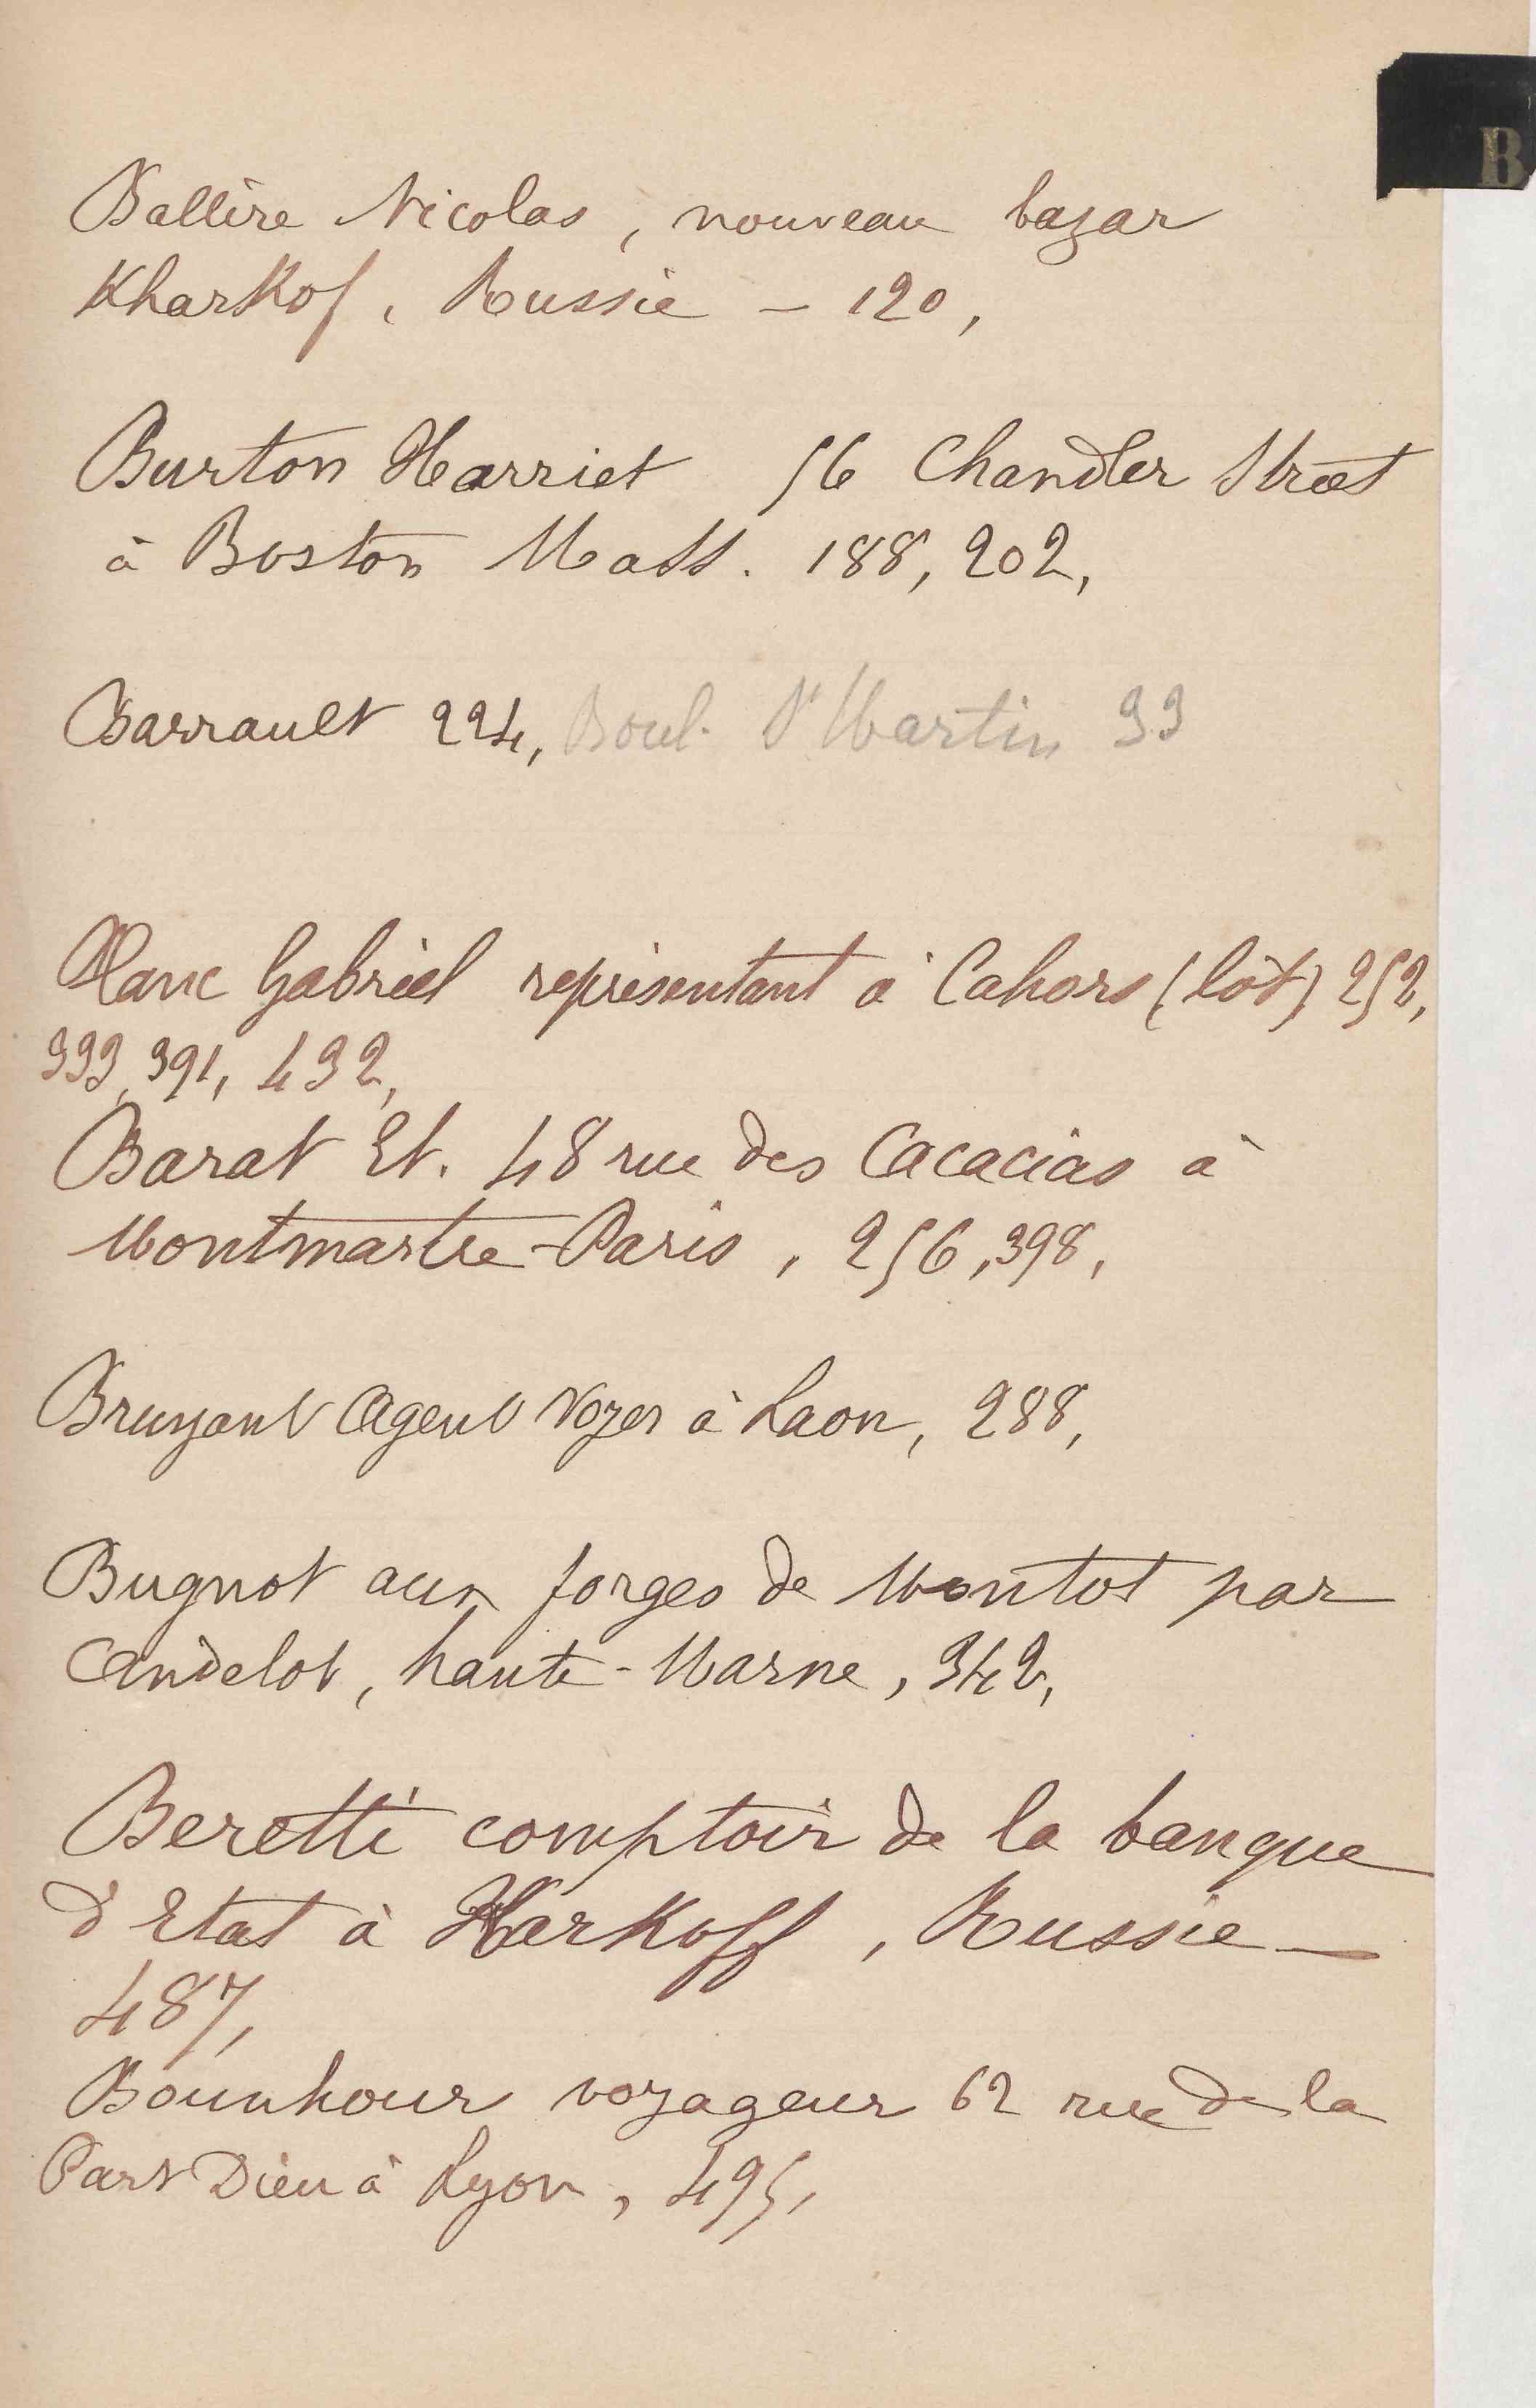 B
Ballère Nicolas, nouveau bazar
Kharkof, Russie - 120,
Burton Harriet 56 Chandler Street
à Boston Mass. 188, 202,
Barrault 224, Boul. St Martin 33
Blanc Gabriel représentant à Cahors (lot) 252,
333, 391, 432,
Barat Et. 48 rue des Acacias à
Montmartre-Paris, 256, 398,
Bruyant Agent Voyer à Laon, 288,
Bugnot aux forges de Montot par
Andelot, haute-Marne, 342,
Beretti comptoir de la banque
d'Etat à Karkoff, Russie -
487,
Bounhour voyageur 62 rue de la
Part Dieu à Lyon, 495,